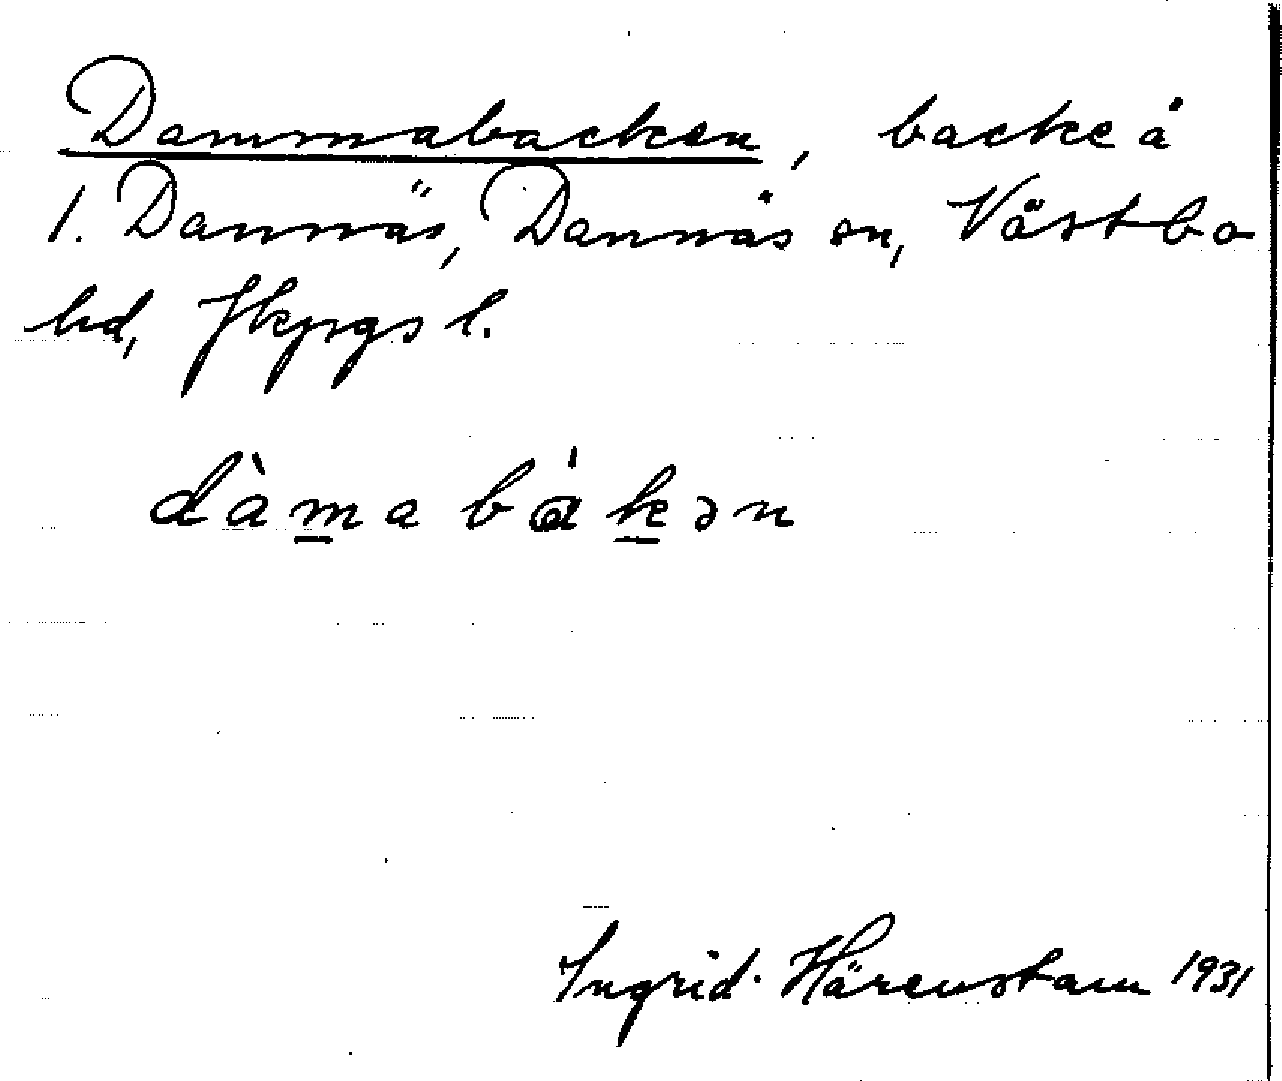 Dammabacken, backe å
1. Dannäs, Dannäs sn, Västbo
hd, Jkpgs l.
dàm̲abák̲ən
Ingrid Härenstam 1931